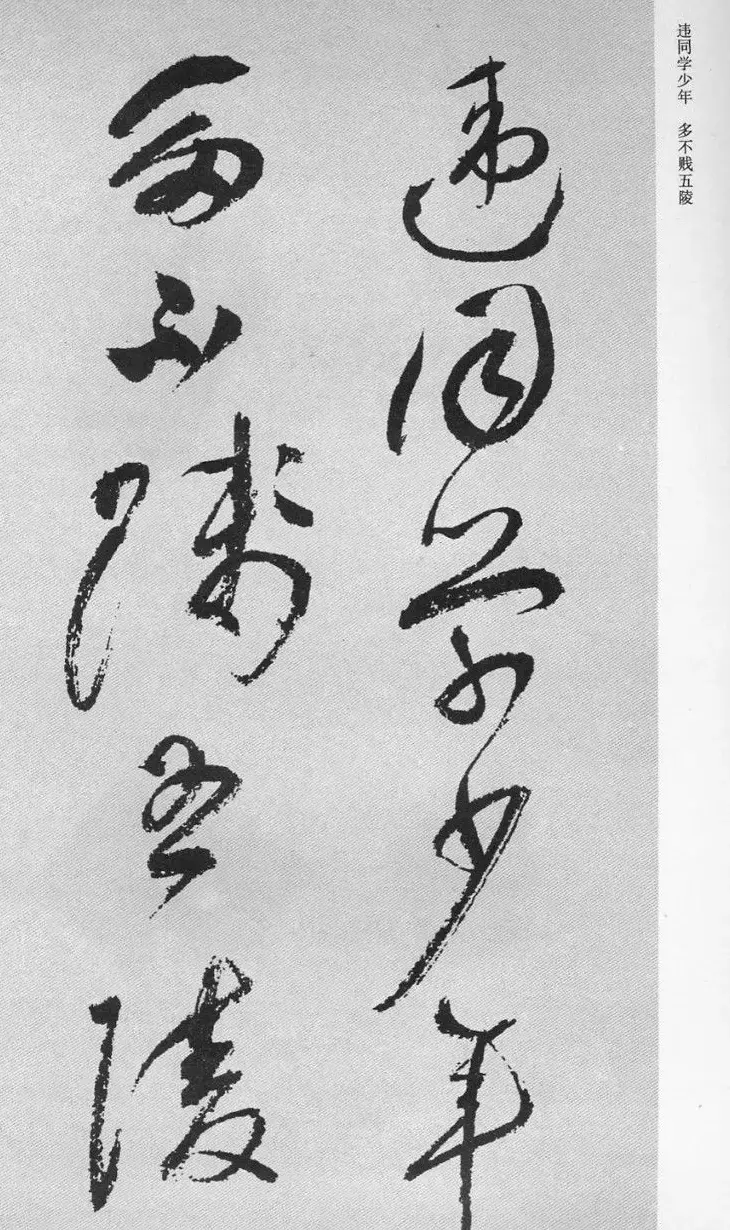 违同学少年 多不贱五陵
違同學少年
多不賤五陵